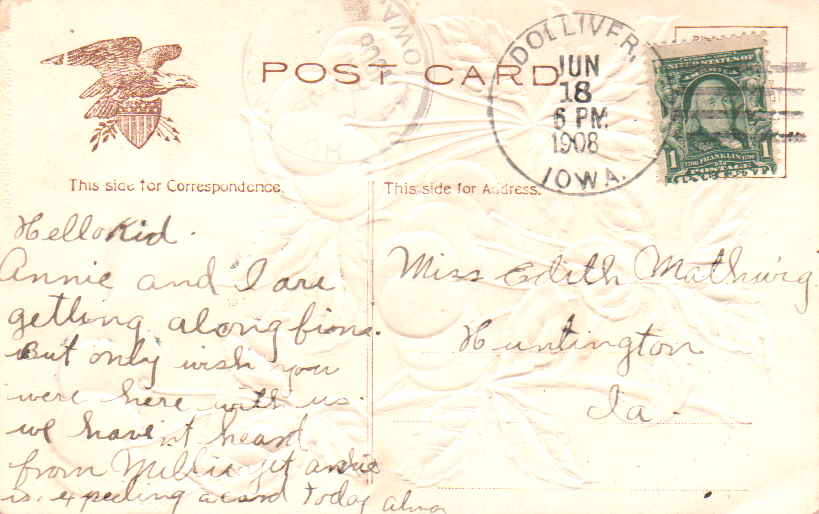 POST CARD
DOLLIVER,
JUN
18
6 PM.
1908
IOWA.
IOWA
1908
UNITED STATES OF
AMERICA
1 FRANKLIN 1
POSTAGE
This side for Correspondence.
This side for Address.
Hello Kid.
Annie and I are
getting along fione.
But only wish you
were here with us.
we havent heard
from Millie yet annie
is expecting a card today
Miss Edith Mathwig
Huntington
Ia.